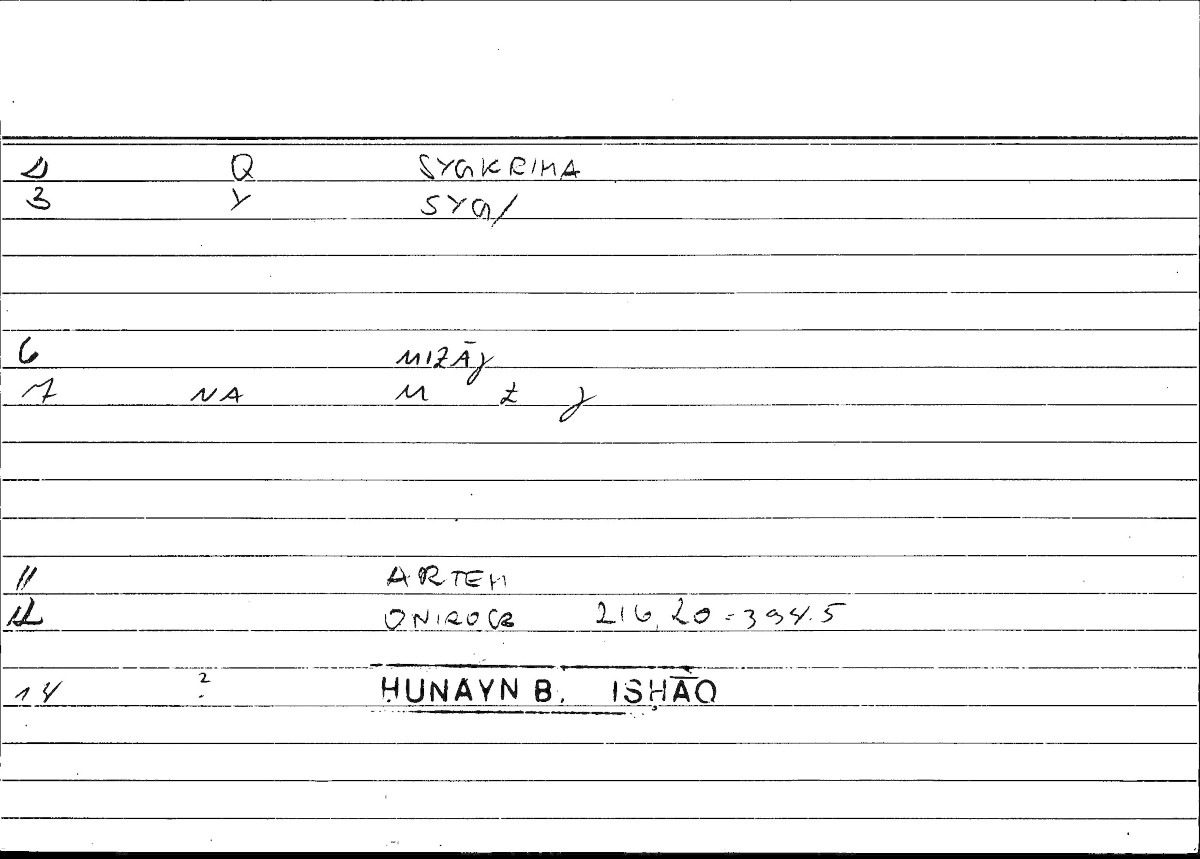 2 Q SYGKRIMA
3 Y SYG/
6 MIZĀJ
7 NA M Z J
11 ARTEM
12 ONIROCR 216,20 = 394.5
14 ? ḤUNAYN B. ISḤĀQ